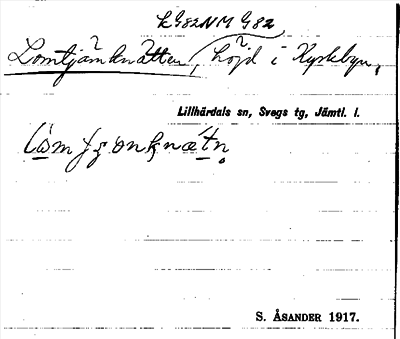 kG82NM G82
Lomtjärnknätten, höjd i Kyrkbyn,
Lillhärdals sn, Svegs tg, Jämtl. l.
S. ÅSANDER 1917.